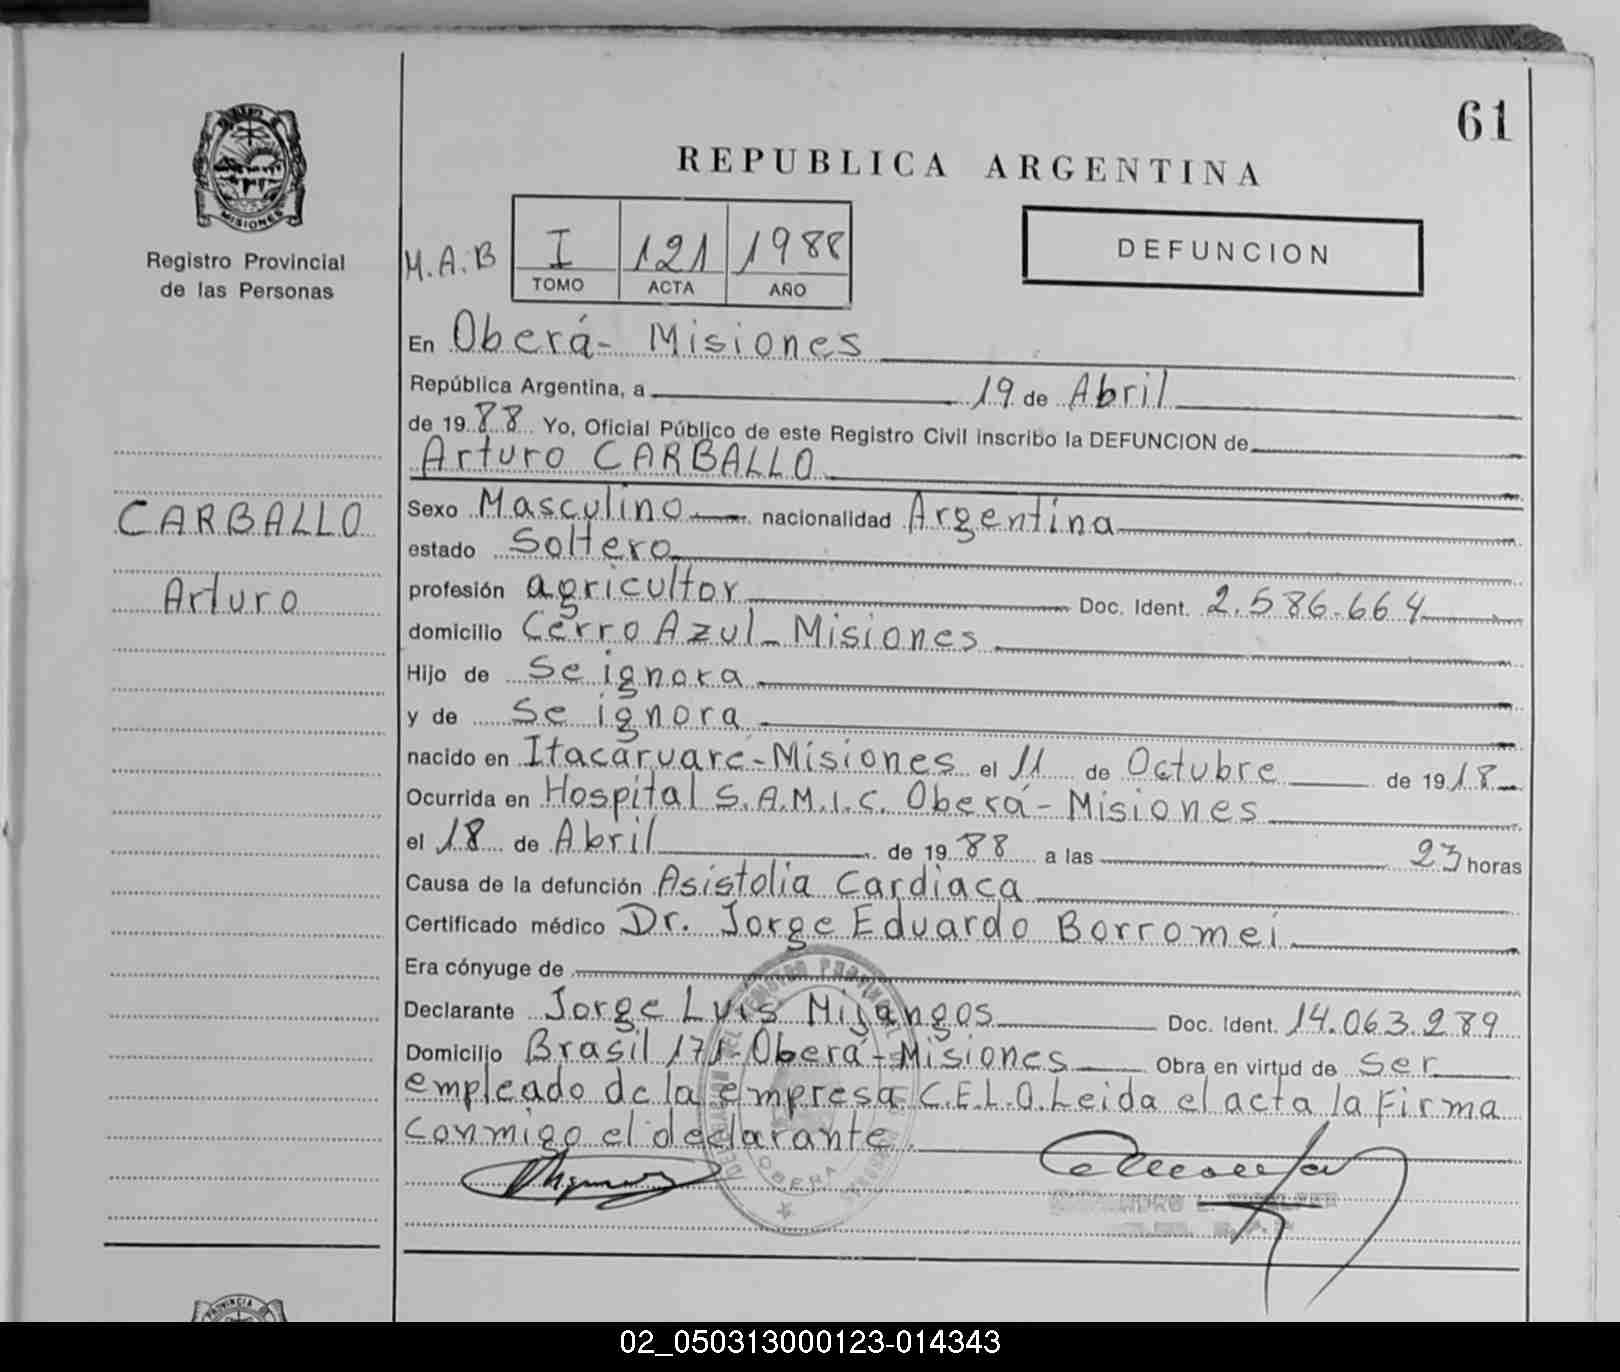 61
REPUBLICA ARGENTINA
MISIONES
Registro Provincial
de las Personas
M.A.B
I 121 1988
TOMO ACTA AÑO
DEFUNCION
En Oberá - Misiones
República Argentina, a 19 de Abril
de 1988 Yo, Oficial Público de este Registro Civil inscribo la DEFUNCION de
Arturo CARBALLO
CARBALLO
Arturo
Sexo Masculino nacionalidad Argentina
estado Soltero
profesión agricultor Doc. Ident. 2.586.664
domicilio Cerro Azul - Misiones
Hijo de Se ignora
y de Se ignora
nacido en Itacaruaré - Misiones el 11 de Octubre de 1918
Ocurrida en Hospital S.A.M.I.C. Oberá - Misiones
el 18 de Abril de 1988 a las 23 horas
Causa de la defunción Asistolia Cardiaca
Certificado médico Dr. Jorge Eduardo Borromei
Era cónyuge de
Declarante Jorge Luis Mijangos Doc. Ident. 14.063.289
Domicilio Brasil 171 - Oberá - Misiones Obra en virtud de ser
empleado de la empresa C.E.L.O. Leida el acta la Firma
conmigo el declarante.
OBERA
PROVINCIA
02_050313000123-014343